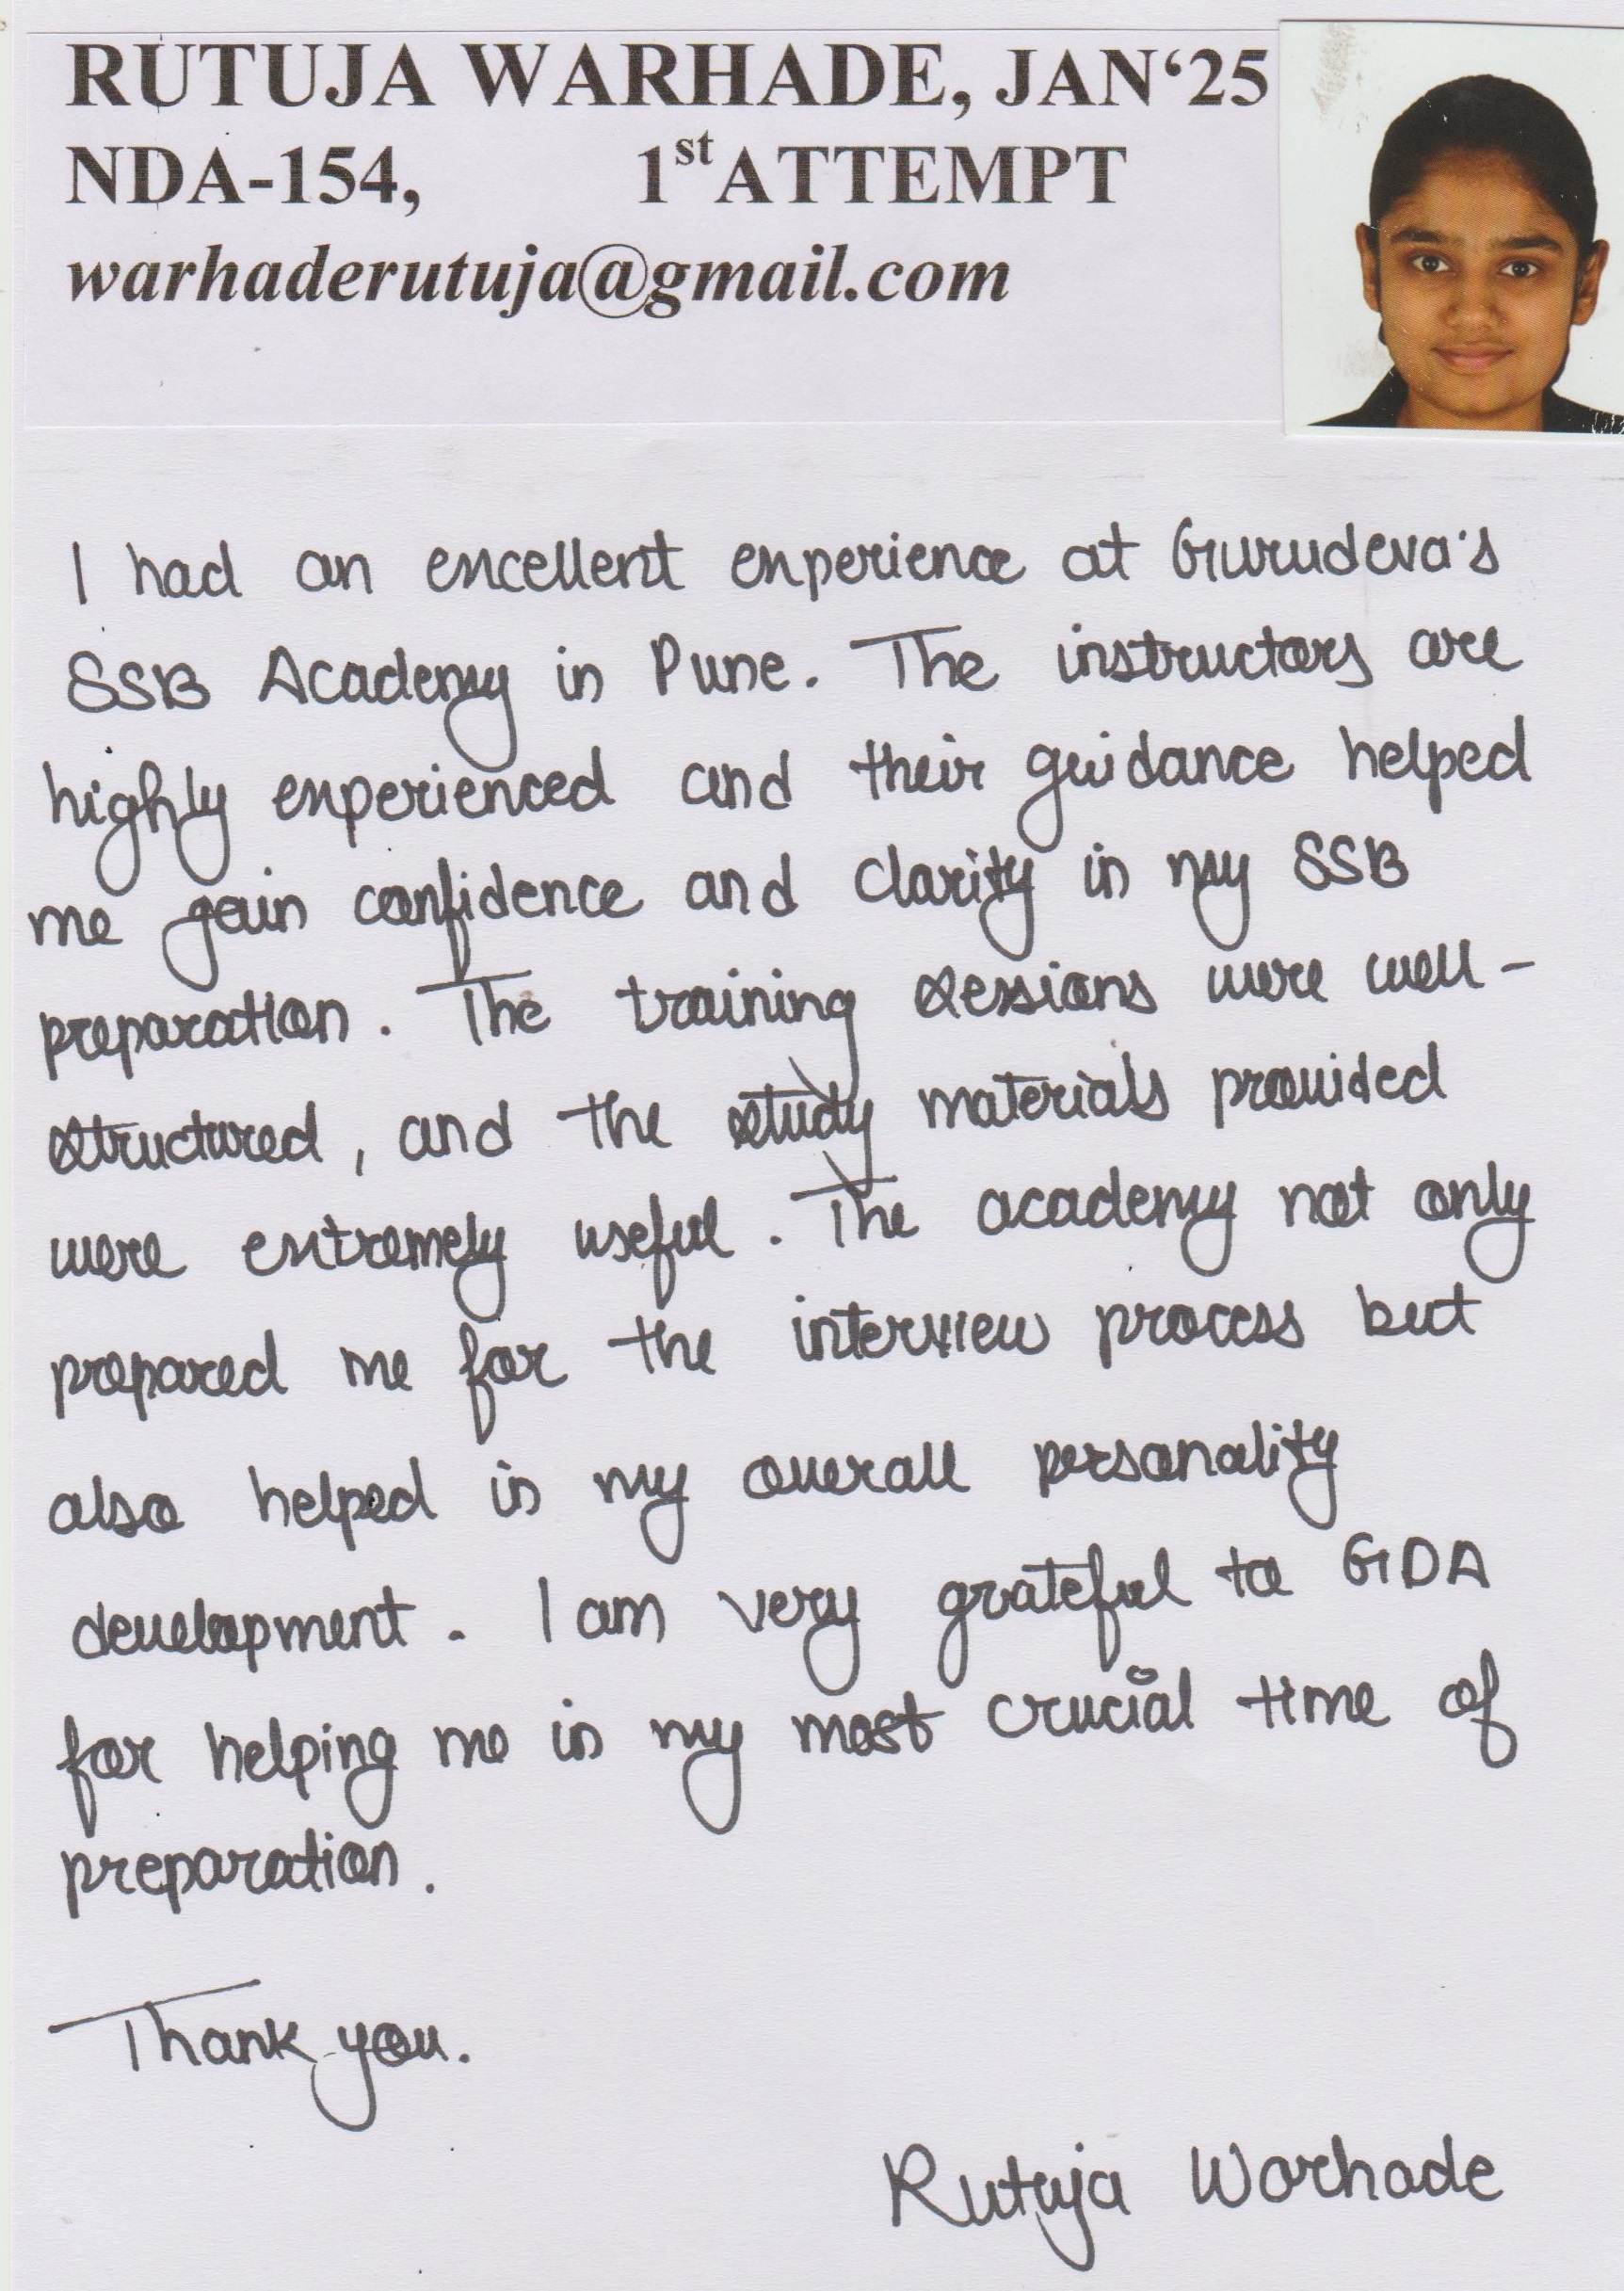 RUTUJA WARHADE, JAN‘25
NDA-154, 1st ATTEMPT
warhaderutuja@gmail.com
I had an excellent experience at Gurudeva's
SSB Academy in Pune. The instructors are
highly experienced and their guidance helped
me gain confidence and clarity in my SSB
preparation. The training sessions were well-
structured, and the study materials provided
were extremely useful. The academy not only
prepared me for the interview process but
also helped in my overall personality
development. I am very grateful to GDA
for helping me in my most crucial time of
preparation.
Thank you.
Rutuja Warhade